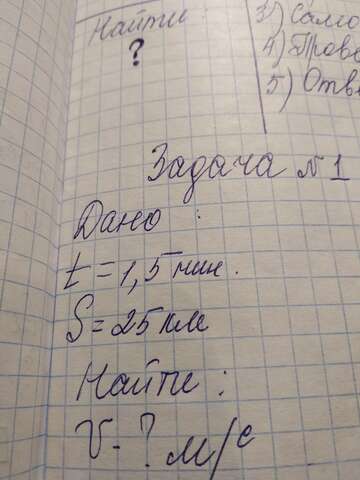 Найти:
?
3) Само
4) Прово
5) Отве
Задача № 1
Дано :
t = 1,5 мин.
S = 25 км
Найти :
V - ? м/с